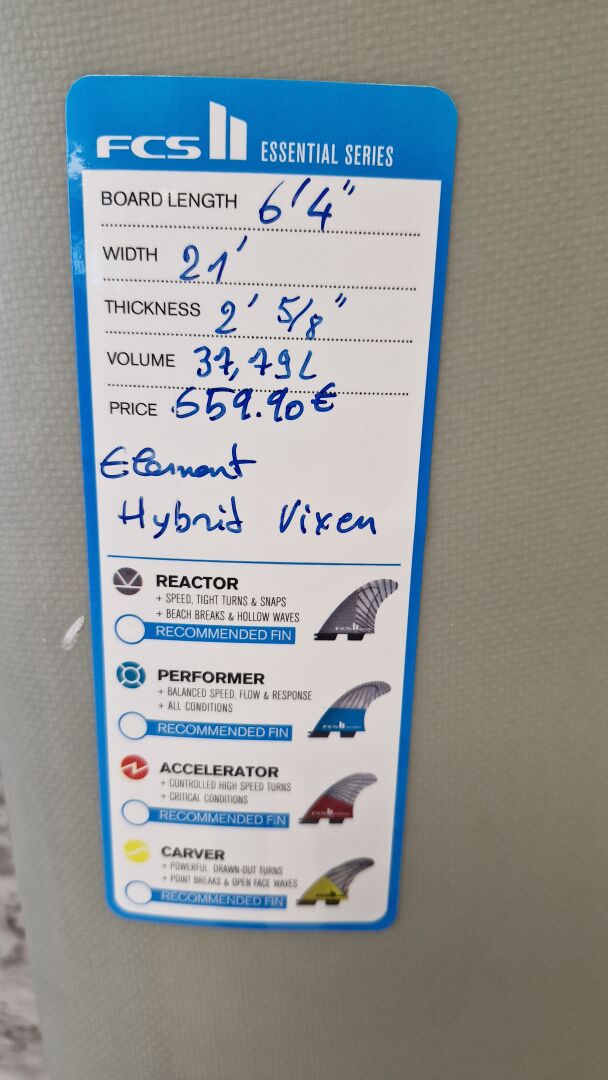 FCS II ESSENTIAL SERIES
BOARD LENGTH 6'4"
WIDTH 21'
THICKNESS 2' 5/8"
VOLUME 37,79L
PRICE 659.90€
Element
Hybrid Vixen
REACTOR
+ SPEED, TIGHT TURNS & SNAPS
+ BEACH BREAKS & HOLLOW WAVES
RECOMMENDED FIN
FCS II
PERFORMER
+ BALANCED SPEED, FLOW & RESPONSE
+ ALL CONDITIONS
RECOMMENDED FIN
FCS II
ACCELERATOR
+ CONTROLLED HIGH SPEED TURNS
+ CRITICAL CONDITIONS
RECOMMENDED FIN
FCS II
CARVER
+ POWERFUL, DRAWN-OUT TURNS
+ POINT BREAKS & OPEN FACE WAVES
RECOMMENDED FIN